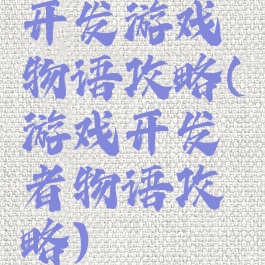 开发游戏
物语攻略(
游戏开发
者物语攻
略)